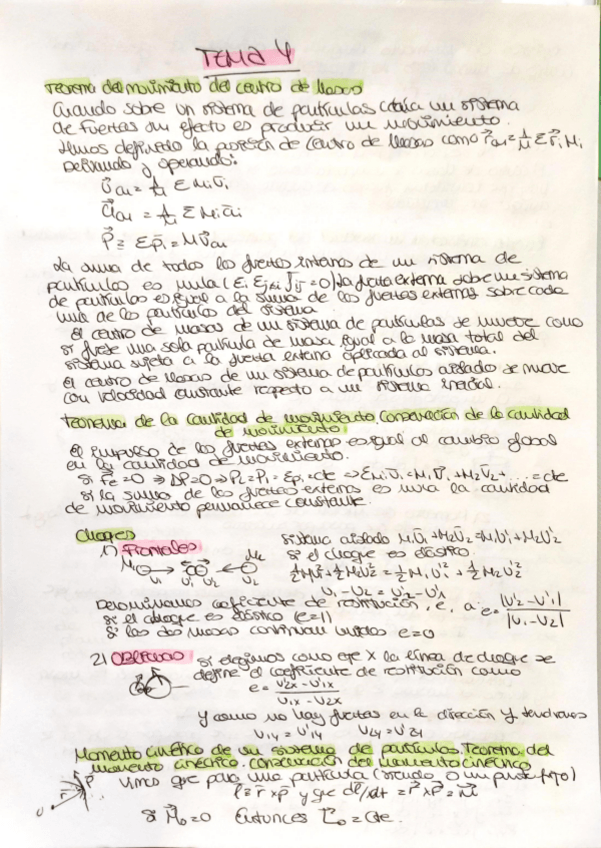 TEMA 4
Teorema del movimiento del centro de Masas
Cuando sobre un sistema de partículas actúa un sistema
de fuerzas su efecto es producir un movimiento.
Hemos definido la posición de centro de Masas como r⃗CM = 1/M Σ r̄i Mi
Derivando y operando:
v⃗CM = 1/M Σ Mi v̄i
a⃗CM = 1/M Σ Mi āi
P⃗ = Σ p̄i = M v⃗CM
La suma de todas las fuerzas internas de un sistema de
partículas es nula (Σi Σj≠i fij = 0) La fuerza externa sobre un sistema
de partículas es igual a la suma de las fuerzas externas sobre cada
una de las partículas del sistema
El centro de masas de un sistema de partículas se mueve como
si fuese una sola partícula de masa igual a la masa total del
sistema sujeta a la fuerza externa aplicada al sistema.
El centro de Masas de un sistema de partículas aislado se mueve
con velocidad constante respecto a un sistema inercial.
Teorema de la cantidad de movimiento. Conservación de la cantidad
de movimiento
El impulso de las fuerzas externas es igual al cambio global
en la cantidad de movimiento.
Si F⃗e = 0 ⇒ ΔP = 0 ⇒ P2 = P1 = Σpi = cte ⇒ Σ Mi v̄i = M1 v̄1 + M2 v̄2 + ... = cte
si la suma de las fuerzas externas es nula la cantidad
de movimiento permanece constante
Choques
1) Frontales
sistema aislado M1v̄1 + M2v̄2 = M1v̄'1 + M2v̄'2
si el choque es elástico.
M1 v1 v'1 v'2 v2 M2
½M1v1² + ½M2v2² = ½M1v'1² + ½M2v'2²
v1 - v2 = v'2 - v'1
Denominamos coeficiente de restitución, e, a: e = |v'2 - v'1| / |v1 - v2|
si el choque es elástico (e=1)
si las dos masas continúan unidas e=0
2) Oblicuos
si elegimos como eje X la línea de choque se
define el coeficiente de restitución como
e = v'2x - v'1x / v1x - v2x
y como no hay fuerzas en la dirección Y tendremos
v1y = v'1y v2y = v'2y
Momento cinético de un sistema de partículas. Teorema del
momento cinético. Conservación del momento cinético
Vimos que para una partícula (siendo O un punto fijo)
l̄ = r̄ x p̄ y que dl̄/dt = r⃗ x F⃗ = M⃗
Si M⃗o = 0 Entonces L⃗o = Cte.